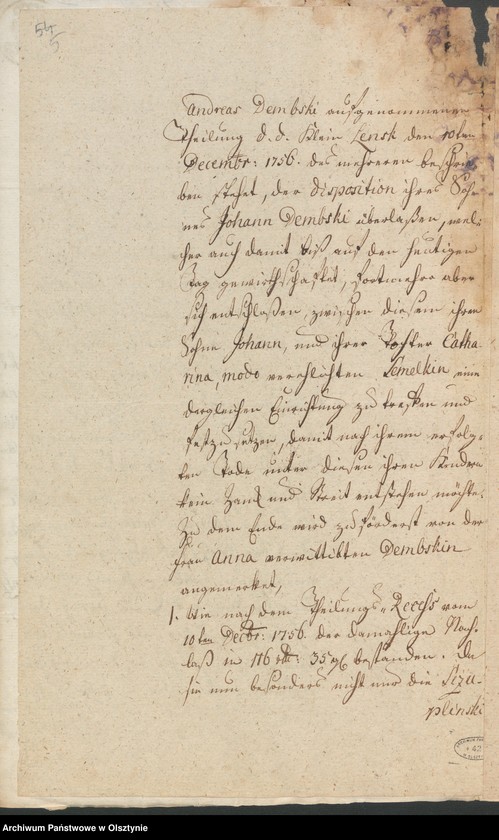 54
5
Andreas Dembski aufgenommenen
Theilung d. d. Klein Lensk den 10ten
Decembr: 1756. des mehreren beschrie-
ben stehet, der Disposition ihres Soh-
nes Johann Dembski überlaßen, wel-
cher auch damit biß auf den heutigen
Tag gewirthschaftet, sich entschloßen, zwischen diesem ihren
Sohne Johann, und ihrer Tochter Catha-
rina, modo verehlichten Lemelkin eine
dergleichen Einrichtung zu treffen und
fest zu setzen, damit nach ihrem erfolg-
ten Tode unter diesen ihren Kindern
kein Zank und Streit entstehen möchte.
Zu dem Ende wird zuförderst von der
Frau Anna verwittibten Dembskin
angemerket,
1. Wie nach dem Theilungs-Recess vom
10ten Decbr: 1756. der damahlige Nach-
laß in 116 rtl: 35 gl bestanden. Da
sie nun besonders nicht nur die Szu-
plinski
Archiwum Państwowe w Olsztynie